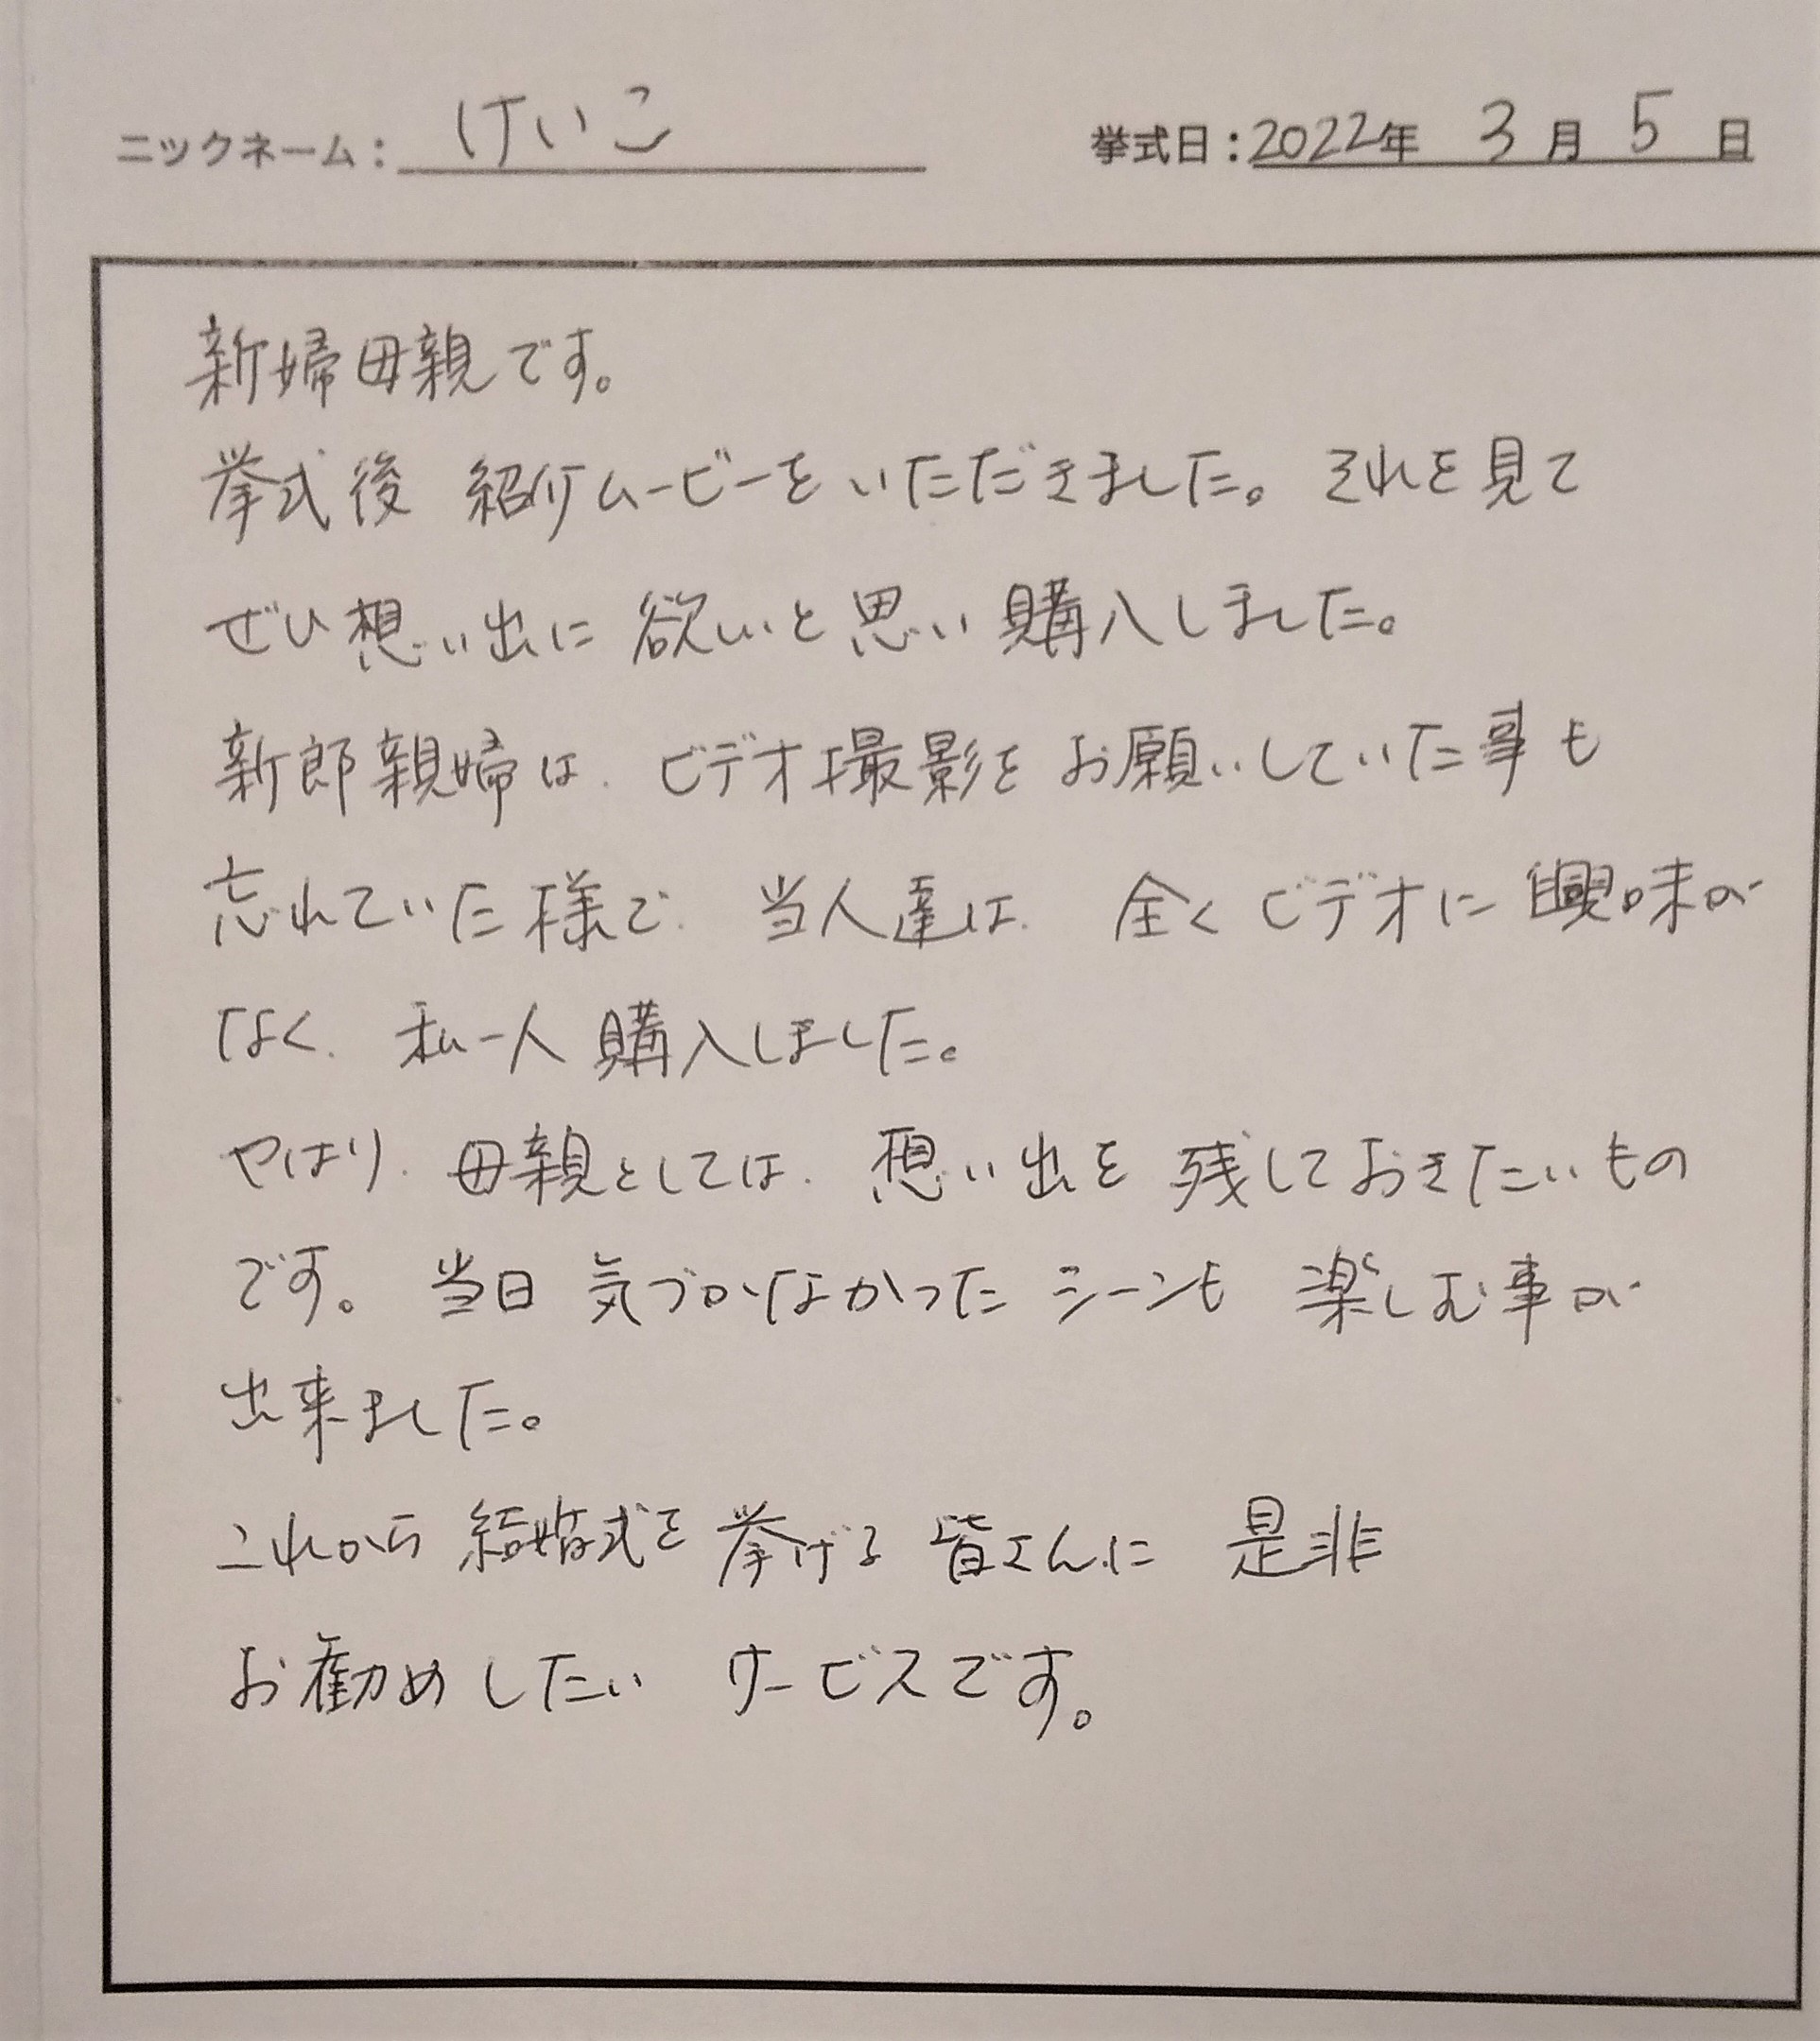 ニックネーム：けいこ　挙式日：2022年 3月 5日
新婦母親です。
挙式後 紹介ムービーをいただきました。それを見て
ぜひ想い出に欲しいと思い購入しました。
新郎親婦は、ビデオ撮影をお願いしていた事も
忘れていた様で、当人達は、全くビデオに興味が
なく、私一人購入しました。
やはり、母親としては、想い出を残しておきたいもの
です。当日気づかなかったシーンも楽しむ事が
出来ました。
これから結婚式を挙げる皆さんに是非
お勧めしたいサービスです。